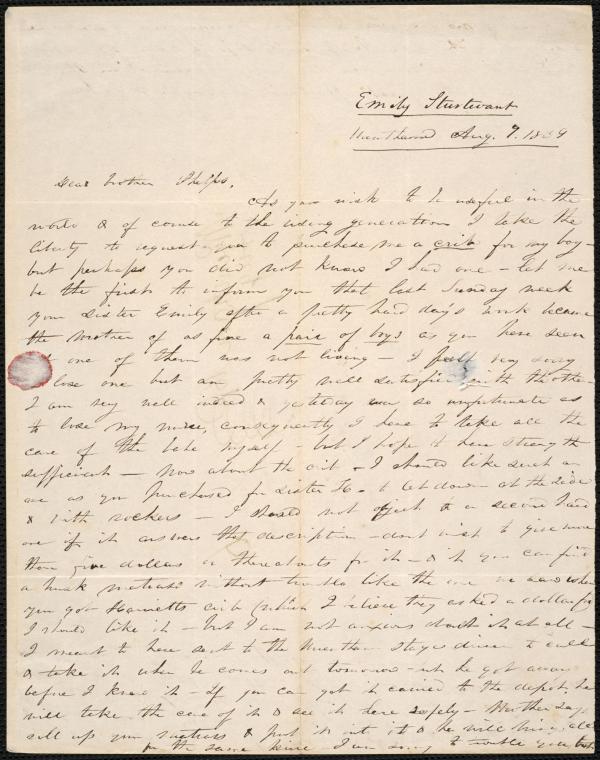 Emily Sturtevant
Aug. 7. 1839
Dear brother Phelps,
As you wish to be useful in the
world & of course to the rising generation I take the
liberty to request you to purchase me a crib for my boy -
but perhaps you did not know I had one - let me
be the first to inform you that last Sunday week
your sister Emily after a pretty hard day's work became
the mother of as fine a pair of boys as you have seen
one of them was not living - I feel very sorry
lose one but am pretty well satisfied with the other
I am very well indeed & yesterday was so unfortunate as
to lose my nurse, consequently I have to take all the
care of the babe myself - but I hope to have strength
sufficient - Now about the crib - I should like such an
one as you purchased for sister H- to let down at the side
& with rockers - I should not object to a second hand
one if it answers that description - don't wish to give more
than five dollars or thereabouts for it - & if you can find
a husk mattress without trouble like the one we saw when
you got Harriett's crib (which I believe they asked a dollar for
I should like it - but I am not anxious about it at all -
I meant to have sent to the stage driver to call
& take it when he comes out tomorrow - but he got away
before I knew it - If you can get it carried to the depot, he
will take the care of it & see it here safely -
roll up your mattress & put it in it & he will bring all
for the same price - I am sorry to trouble you but